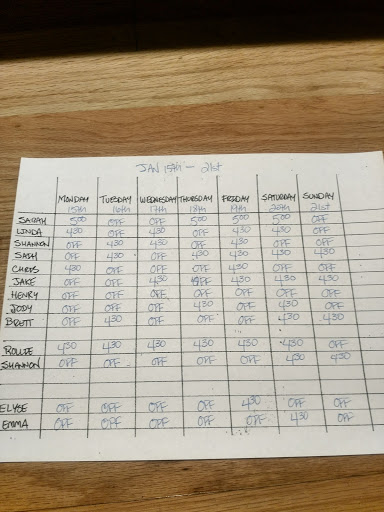 JAN 15th - 21st
MONDAY TUESDAY WEDNESDAY THURSDAY FRIDAY SATURDAY SUNDAY
15th 16th 17th 18th 19th 20th 21st
SARAH 5:00 OFF OFF 5:00 5:00 5:00 OFF
LINDA 4:30 OFF 4:30 OFF 4:30 4:30 OFF
SHANNON OFF 4:30 4:30 OFF 4:30 OFF OFF
SAM OFF 4:30 OFF 4:30 4:30 4:30 4:30
CHRIS 4:30 OFF OFF OFF 4:30 OFF OFF
JAKE OFF OFF 4:30 OFF 4:30 4:30 4:30
HENRY OFF OFF OFF OFF OFF OFF OFF
JODY OFF OFF OFF 4:30 OFF 4:30 OFF
BRETT OFF 4:30 OFF OFF OFF 4:30 4:30
ROLLIE 4:30 4:30 4:30 4:30 4:30 4:30 OFF
SHANNON OFF OFF OFF OFF OFF 4:30 4:30
ELYSE OFF OFF OFF OFF 4:30 OFF OFF
EMMA OFF OFF OFF OFF OFF 4:30 OFF